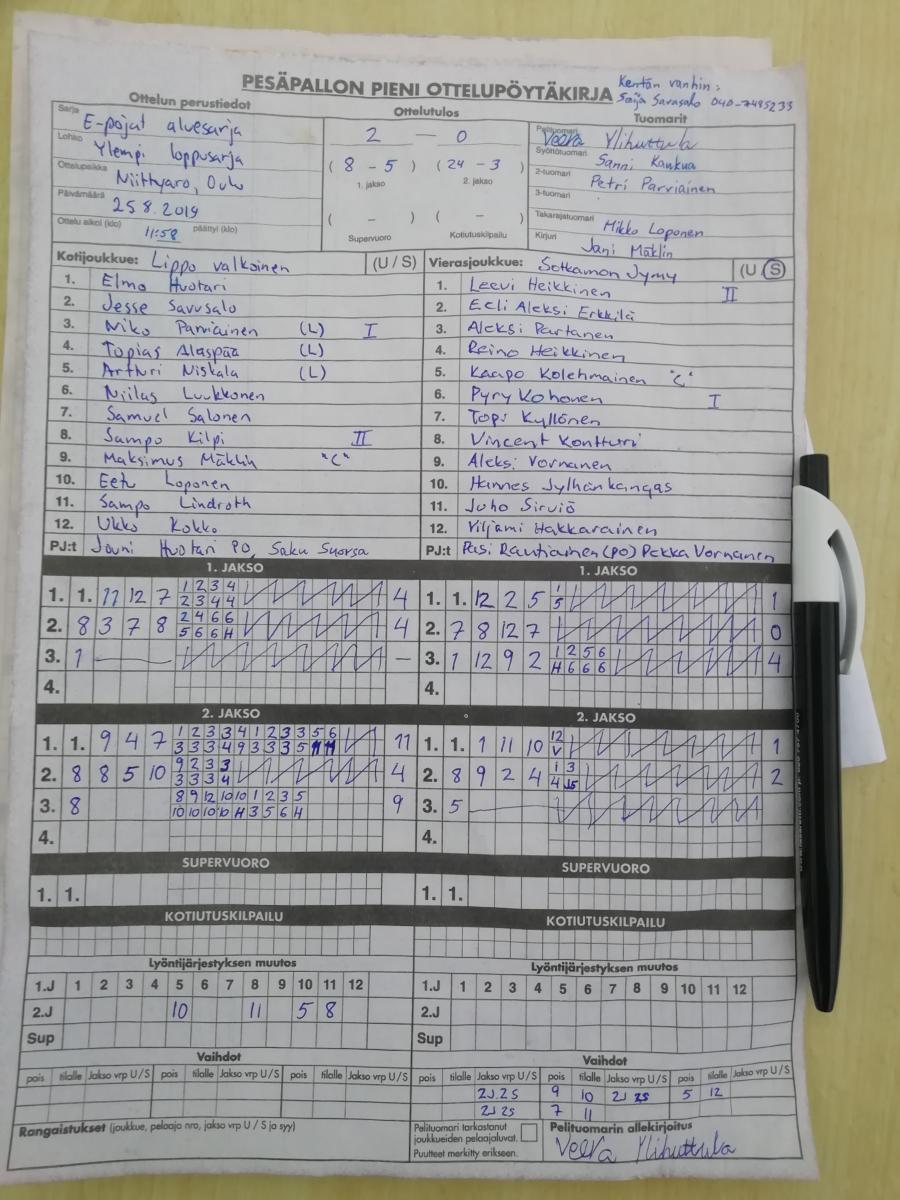 PESÄPALLON PIENI OTTELUPÖYTÄKIRJA
Kentän vanhin:
Saija Savusalo 040-7495233
Ottelun perustiedot
Ottelutulos
Tuomarit
Sarja E-pojat aluesarja
Lohko Ylempi loppusarja
Ottelupaikka Niittyaro, Oulu
Päivämäärä 25.8.2019
Ottelu alkoi (klo) 11:58 päättyi (klo)
2 – 0
(8 – 5) (24 – 3)
1. jakso 2. jakso
( – ) ( – )
Supervuoro Kotiutuskilpailu
Pelituomari Veera Ylihuttula
Syöttötuomari Sanni Kaukua
2-tuomari Petri Parviainen
3-tuomari
Takarajatuomari Mikko Loponen
Kirjuri Jani Mäklin
Kotijoukkue: Lippo valkoinen (U / S)
1. Elmo Huotari
2. Jesse Savusalo
3. Niko Parviainen (L) I
4. Topias Alaspää (L)
5. Artturi Niskala (L)
6. Niilas Luukkonen
7. Samuel Salonen
8. Sampo Kilpi II
9. Maksimus Mäklin "C"
10. Eetu Loponen
11. Sampo Lindroth
12. Ukko Kokko
PJ:t Jouni Huotari PO, Saku Suorsa
Vierasjoukkue: Sotkamon Jymy (U / S)
1. Leevi Heikkinen II
2. Eeli Aleksi Erkkilä
3. Aleksi Partanen
4. Reino Heikkinen
5. Kaapo Kolehmainen "C"
6. Pyry Kohonen I
7. Topi Kyllönen
8. Vincent Kontturi
9. Aleksi Vornanen
10. Hannes Jylhänkangas
11. Juho Sirviö
12. Viljami Hakkarainen
PJ:t Pasi Rautiainen (PO) Pekka Vornanen
1. JAKSO
1. 1. 11 12 7 1 2 3 4 4
2 3 4 4
2. 8 3 7 8 2 4 6 6 4
5 6 6 H
3. 1 –
4.
1. JAKSO
1. 1. 12 2 5 1 1
5
2. 7 8 12 7 0
3. 1 12 9 2 1 2 5 6 4
H 6 6 6
4.
2. JAKSO
1. 1. 9 4 7 1 2 3 3 4 1 2 3 3 5 6 11
3 3 3 4 9 3 3 3 5 11 11
2. 8 8 5 10 9 2 3 3 4
3 3 3 4
3. 8 8 9 12 10 10 1 2 3 5 9
10 10 10 10 H 3 5 6 H
4.
2. JAKSO
1. 1. 1 11 10 12 1
V
2. 8 9 2 4 1 3 2
4
3. 5
4.
SUPERVUORO
1. 1.
SUPERVUORO
1. 1.
KOTIUTUSKILPAILU
KOTIUTUSKILPAILU
Lyöntijärjestyksen muutos
1.J 1 2 3 4 5 6 7 8 9 10 11 12
2.J 10 11 5 8
Sup
Lyöntijärjestyksen muutos
1.J 1 2 3 4 5 6 7 8 9 10 11 12
2.J
Sup
Vaihdot
pois tilalle Jakso vrp U/S pois tilalle Jakso vrp U/S pois tilalle Jakso vrp U/S
Vaihdot
pois tilalle Jakso vrp U/S pois tilalle Jakso vrp U/S pois tilalle Jakso vrp U/S
2J.2S 9 10 2J 2S 5 12
2J 2S 7 11
Rangaistukset (joukkue, pelaaja nro, jakso vrp U / S ja syy)
Pelituomari tarkastanut
joukkueiden pelaajaluvat.
Puutteet merkitty erikseen.
Pelituomarin allekirjoitus
Veera Ylihuttula